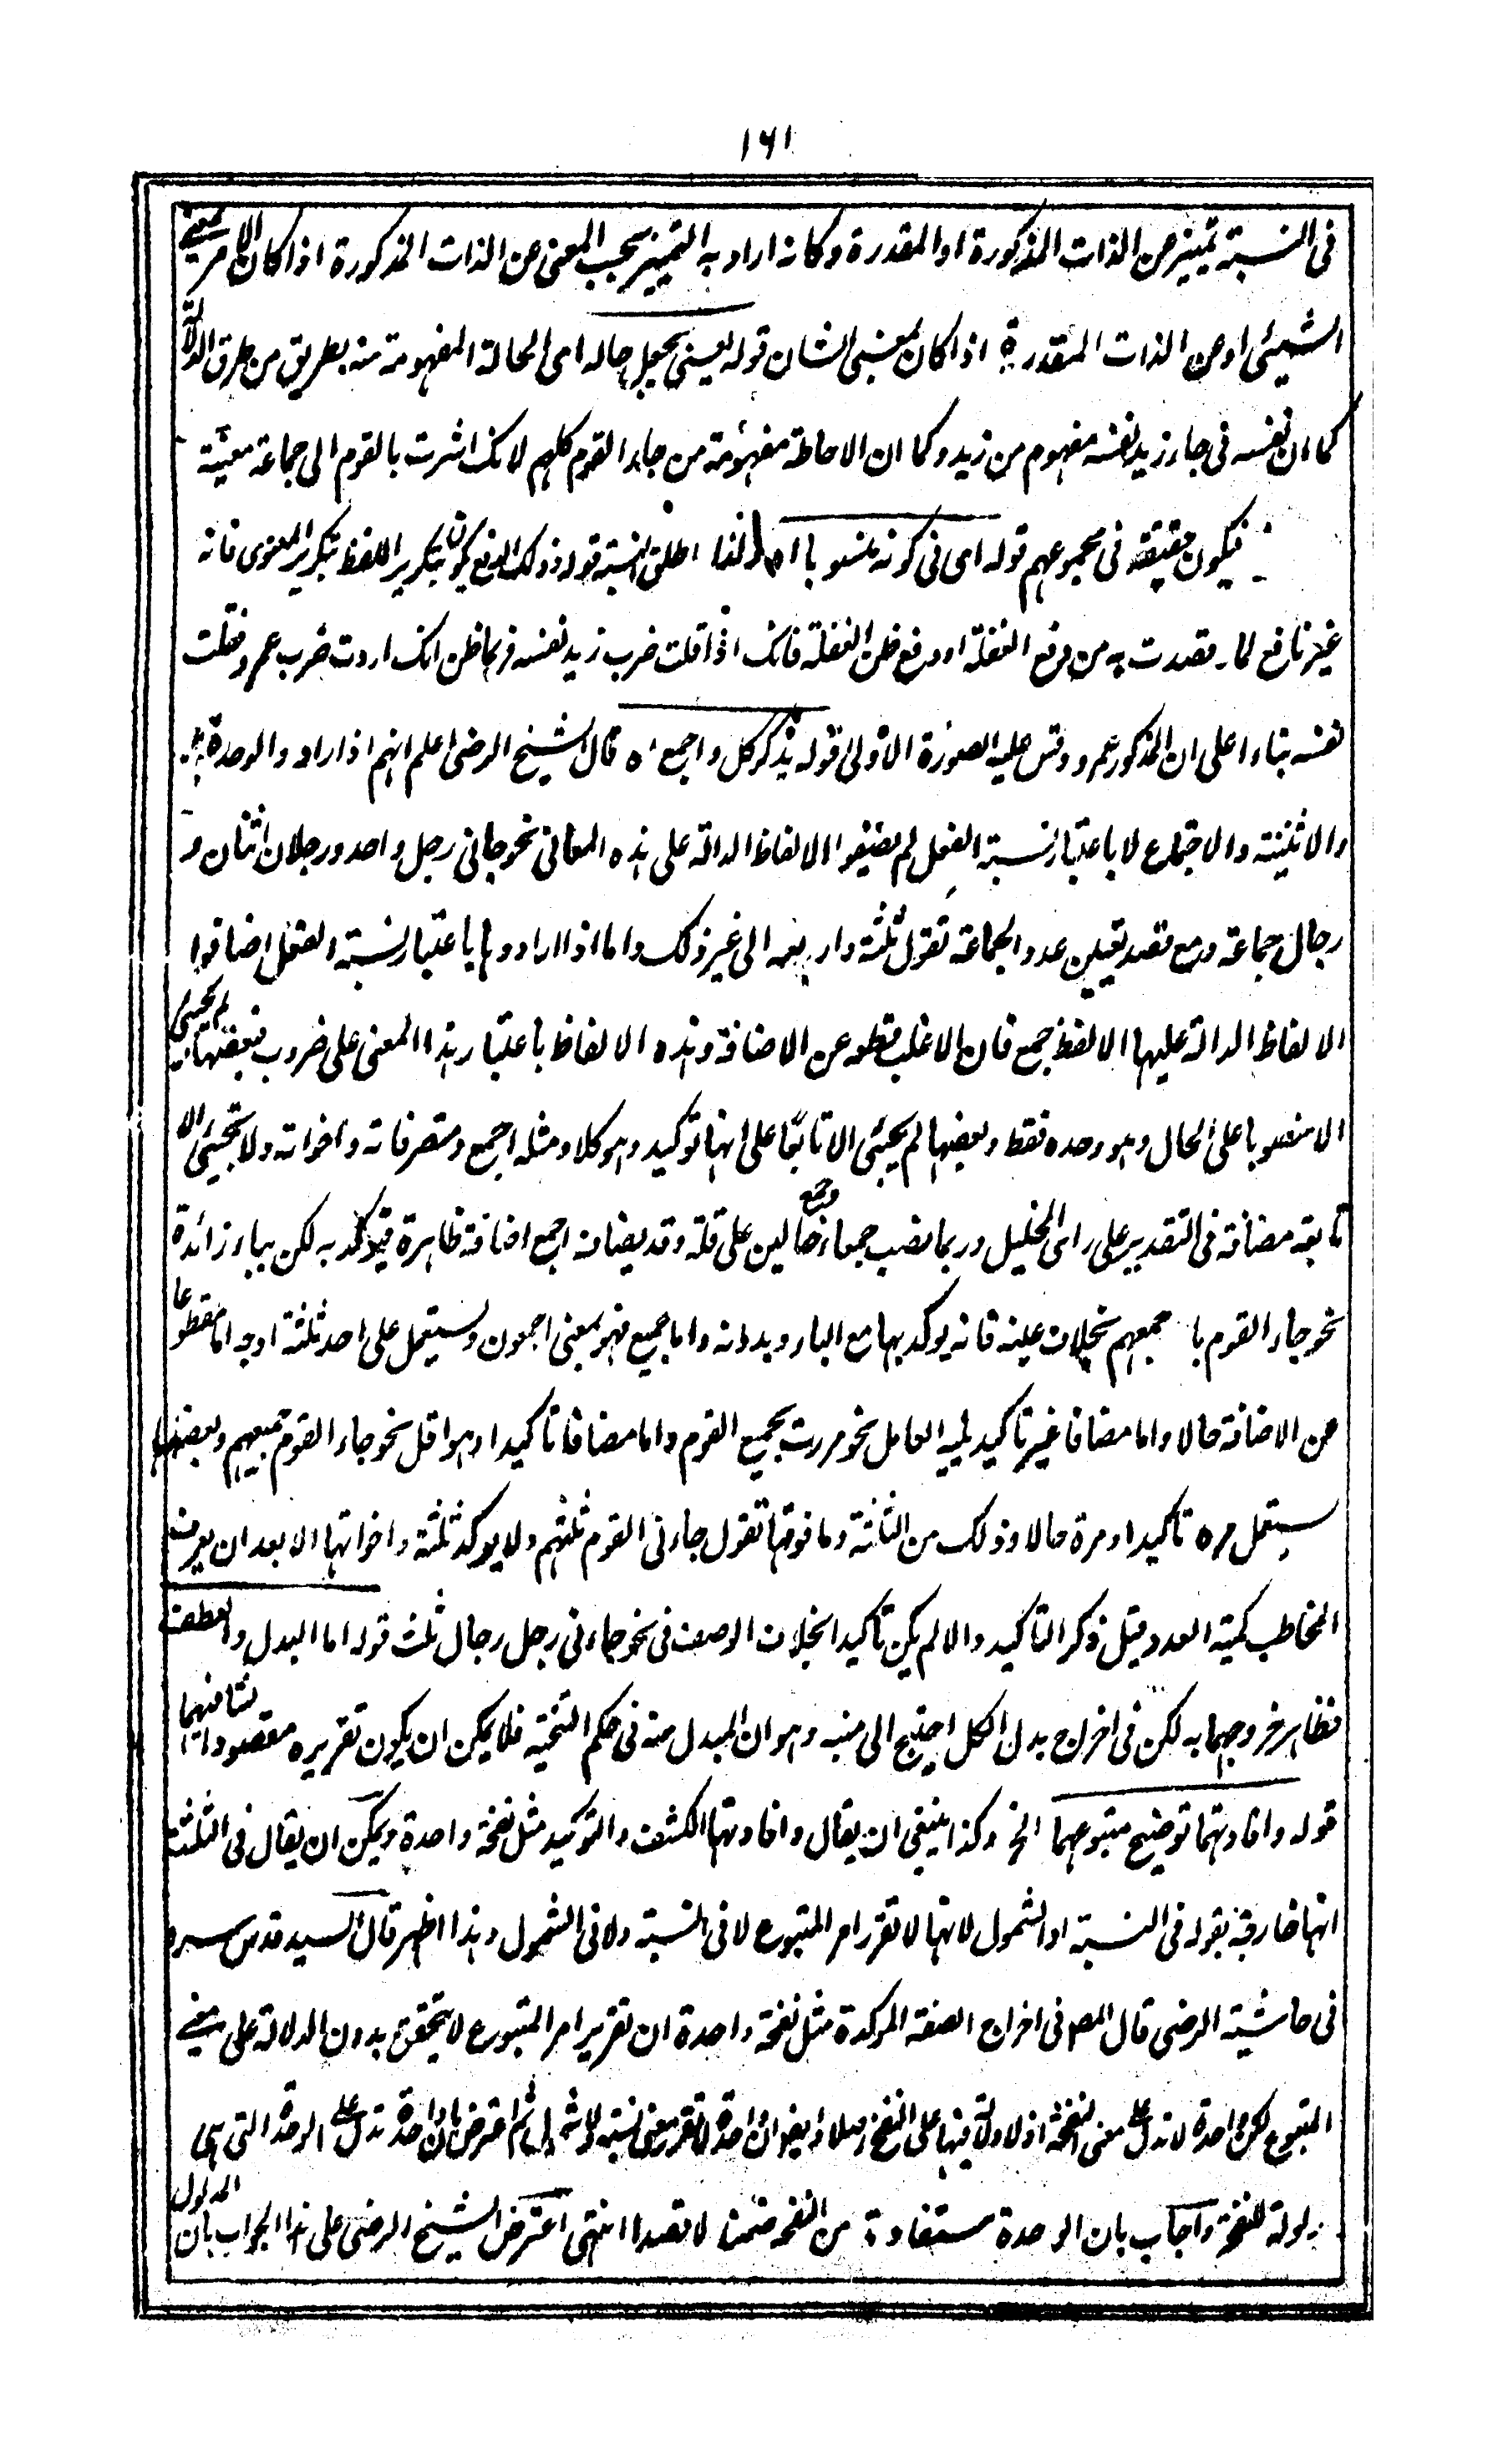 ١٦١
فى النسبة تميز عن الذات المذكورة او المقدرة وكانه اراد به التميز بحسب المعنى عن الذات المذكورة اذا كان الامر بمعنى
الشيئ او عن الذات المقدرة اذا كان بمعنى الشان قوله يعنى يجعل حاله اى الحالة المفهومة منه بطريق من طرق الدلالة
كما ان نفسه فى جاء زيد نفسه مفهوم من زيد وكما ان الاحاطة مفهومة من جاء القوم كلهم لانك اشرت بالقوم الى جماعة معينة
فيكون حقيقة فى مجموعهم قوله اى فى كونه منسوبا اه لذا اطلق النسبة قوله وذلك الدفع يكون بتكرير اللفظ بتكرير المعنوى فانه
غير نافع لما قصدت به من دفع الغفلة او دفع ظن الغفلة فانك اذا قلت ضرب زيد نفسه فربما ظن انك اردت ضرب عمرو فقلت
نفسه بناء اعلى ان المذكور عمرو وقس عليه الصورة الاولى قوله بذكر كل واجمع اه قال الشيخ الرضى اعلم انهم اذا ارادوا الوحدة
والاثنينة والاجتماع لا باعتبار نسبة الفعل لم يضيفوا الالفاظ الدالة على هذه المعانى نحو جائنى رجل واحد ورجلان اثنان و
رجال جماعة ومع قصد تعيين عدد الجماعة تقول ثلثة واربعة الى غير ذلك واما اذا ارادوها باعتبار نسبة الفعل اضافوا
الالفاظ الدالة عليها الا لفظ جمع فان الاغلب قطعه عن الاضافة وهذه الالفاظ باعتبار هذا المعنى على ضروب فبعضها لم يجيئ
الا منصوبا على الحال وهو وحده فقط وبعضها لم يجيئ الا تابعا على انها توكيد وهو كلا ومثله اجمع ومتصرفاته واخواته ولا تجيئ الا
تابعة مضافة فى التقدير على راى الخليل وربما نصب جمعاء وجمع حالين على قلة وقد يضاف اجمع اضافة ظاهرة فيؤكد به لكن بباء زائدة
نحو جاء القوم باجمعهم بخلاف عينه فانه يوكد بها مع الباء وبدونه واما جميع فهو بمعنى اجمعون ويستعمل على احد ثلثة اوجه اما مقطوعا
عن الاضافة حالا واما مضافا غير تاكيد يليه العامل نحو مررت بجميع القوم واما مضافا تاكيدا وهو اقل نحو جاء القوم جميعهم وبعضها
يستعمل مره تاكيدا ومرة حالا وذلك من الثلثة وما فوقها تقول جاءنى القوم ثلثتهم ولا يوكد ثلثة واخواتها الا بعد ان يعرف
المخاطب كمية العدد قبل ذكر التاكيد والا لم يكن تاكيدا بخلاف الوصف فى نحو جاءنى رجل رجال ثلث قوله اما البدل والعطف
فظاهر خروجهما به لكن فى اخراج بدل الكل احتيج الى منبه وهو ان المبدل منه فى حكم التنحية فلا يمكن ان يكون تقريره مقصودا
قوله وافادتهما توضيح متبوعهما الخ وكذا ينبغى ان يقال وافادتها الكشف والتوكيد مثل نفخة واحدة ويمكن ان يقال فى الثلثة
انها خارجة بقوله فى النسبة او الشمول لانها لا تقرر امر المتبوع لا فى النسبة ولا فى الشمول وهذا اظهر قال السيد قدس سره
فى حاشية الرضى قال المص فى اخراج الصفة المؤكدة مثل نفخة واحدة ان تقرير امر المتبوع لا يتحقق بدون الدلالة على معنى
المتبوع لكن واحدة لا تدل على معنى النفخة اذ لا دلالة فيها على النفخ اصلا وايضا واحدة لا تقرر معنى نسبة ولا شمول ثم اعترض بان واحدة تدل على الوحدة التى هى
مدلولة للنفخة واجاب بان الوحدة مستفادة من النفخة ضمنا لا قصدا انتهى اعترض الشيخ الرضى على هذا الجواب بان المدلول